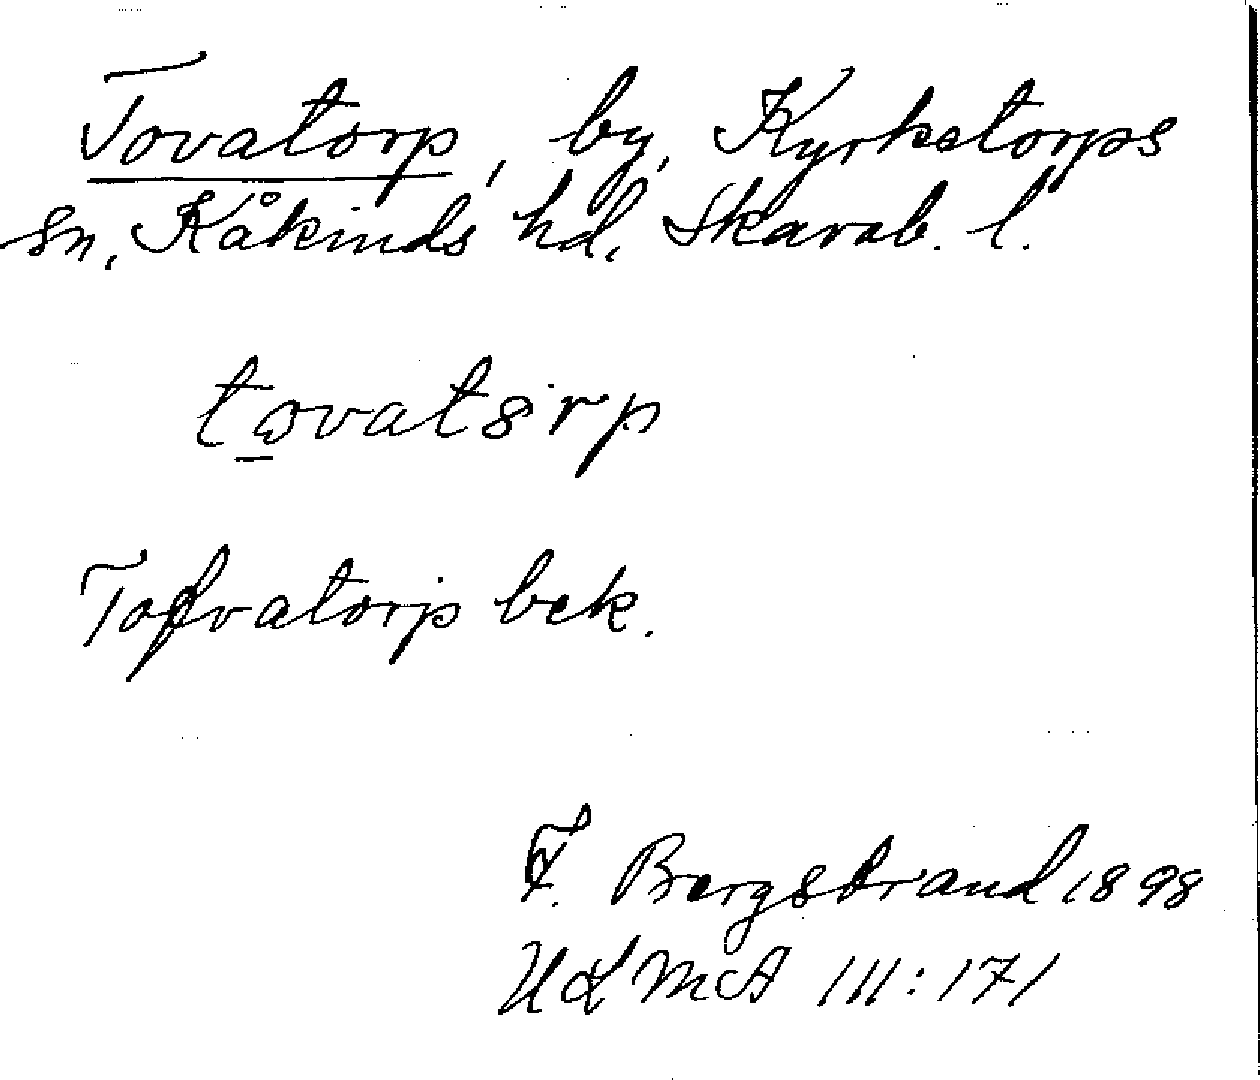 Tovatorp, by, Kyrketorps
sn, Kåkinds hd, Skarab. l.
tovatorp
Tofvatorp bek.
F. Bergstrand 1898
ULMA 111:171